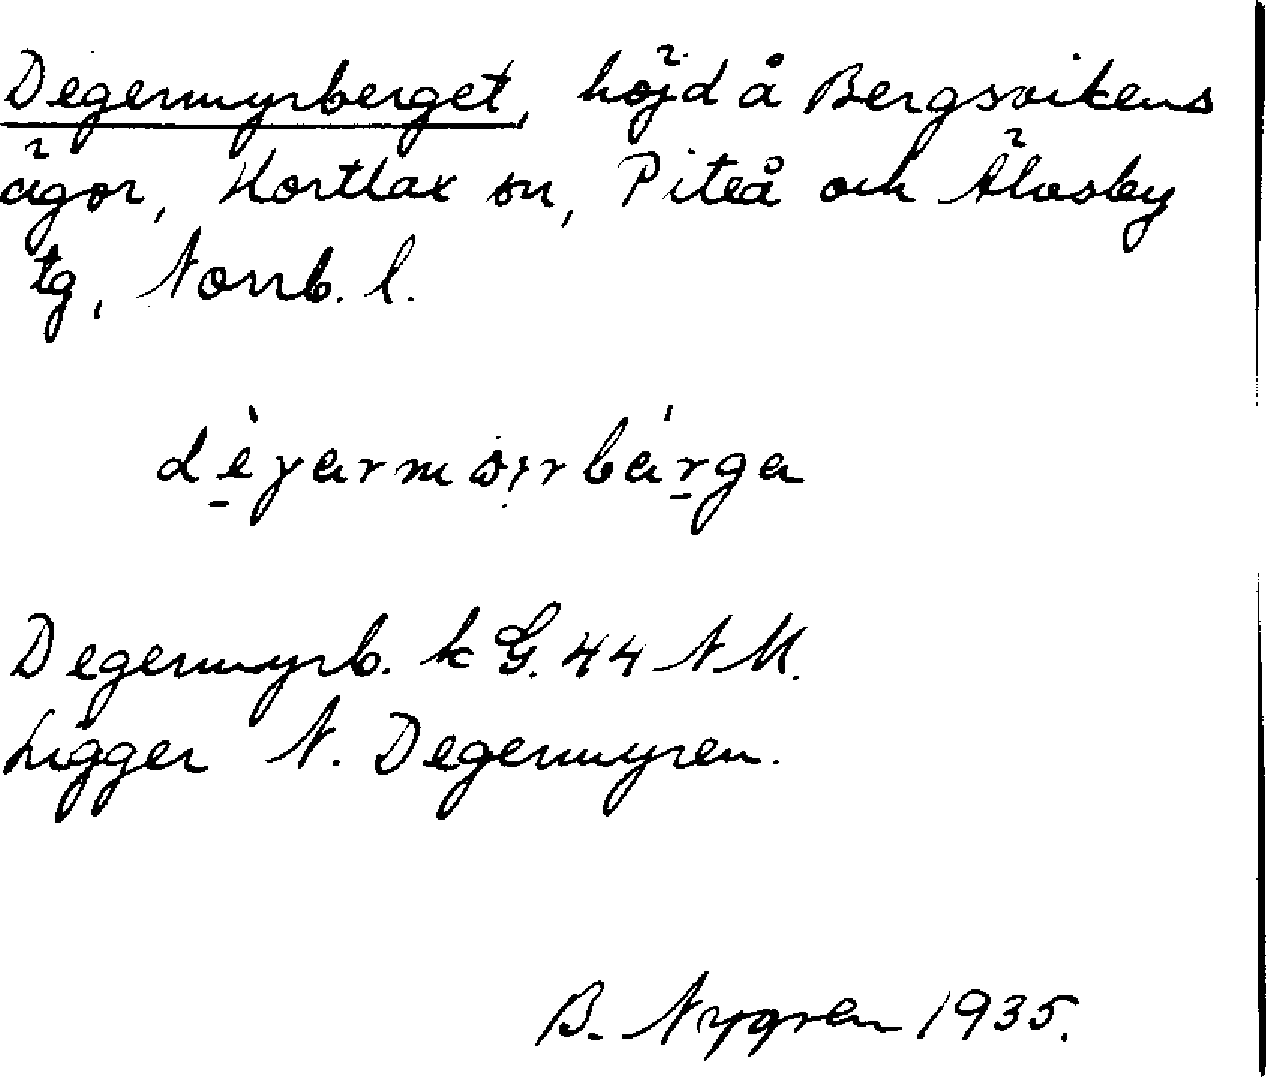 Degermyrberget, höjd å Bergsvikens
ägor, Hortlax sn, Piteå och Älvsby
tg, Norrb. l.
Degermyrb. k G. 44 NM.
Ligger N. Degermyren.
B. Nygren 1935.